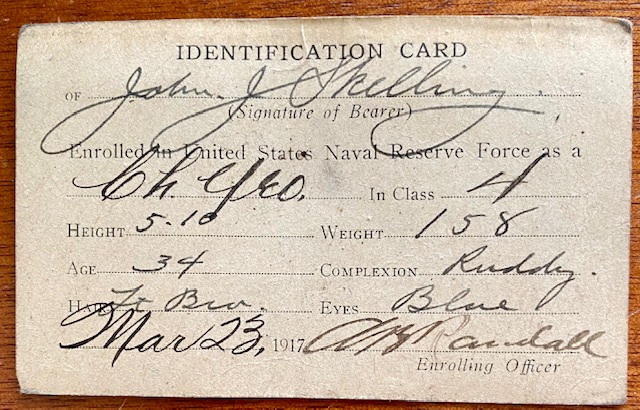 IDENTIFICATION CARD
OF John J Skelling.
(Signature of Bearer)
Enrolled in United States Naval Reserve Force as a
Ch. Yeo. In Class 4
HEIGHT 5-10 WEIGHT 158
AGE 34 COMPLEXION Ruddy.
HAIR Lt Bro. EYES Blue
Mar 23, 1917 A H Randall
Enrolling Officer